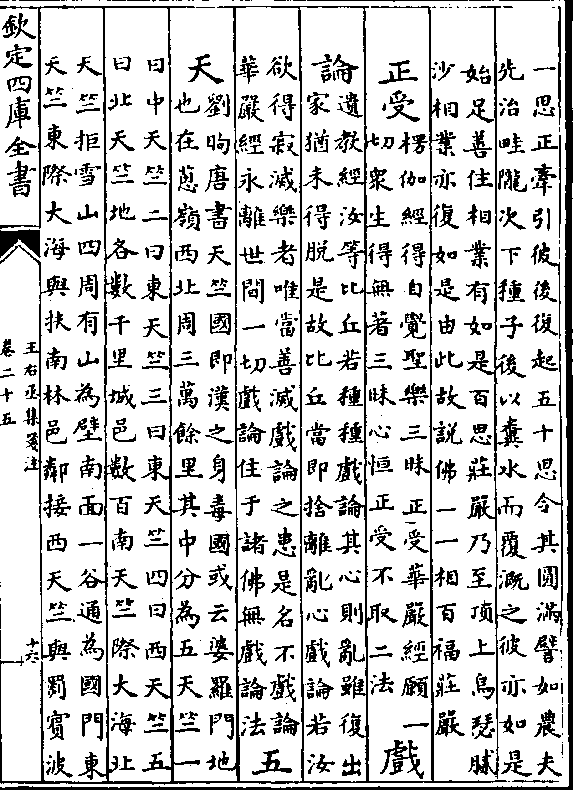 一思正牽引彼後復起五十思令其圓滿譬如農夫
先治畦隴次下種子後以糞水而覆溉之彼亦如是
始足善住相業有如是百思莊嚴乃至頂上烏瑟膩
沙相業亦復如是由此故説佛一一相百福莊嚴
正受
楞伽經得自覺聖樂三昧正受華嚴經願一
切衆生得無著三昧心恒正受不取二法
戲
論
遺教經汝等比丘若種種戲論其心則亂雖復出
家猶未得脱是故比丘當即捨離亂心戲論若汝
欲得寂滅樂者唯當善滅戲論之患是名不戲論
華嚴經永離世間一切戲論住于諸佛無戲論法
五
天
劉昫唐書天竺國即漢之身毒國或云婆羅門地
也在葱嶺西北周三萬餘里其中分為五天竺一
曰中天竺二曰東天竺三曰東天竺四曰西天竺五
曰北天竺地各數千里城邑數百南天竺際大海北
天竺拒雪山四周有山為壁南面一谷通為國門東
天竺東際大海與扶南林邑鄰接西天竺與罽賓波
欽定四庫全書
王右丞集箋注
卷二十五
十六